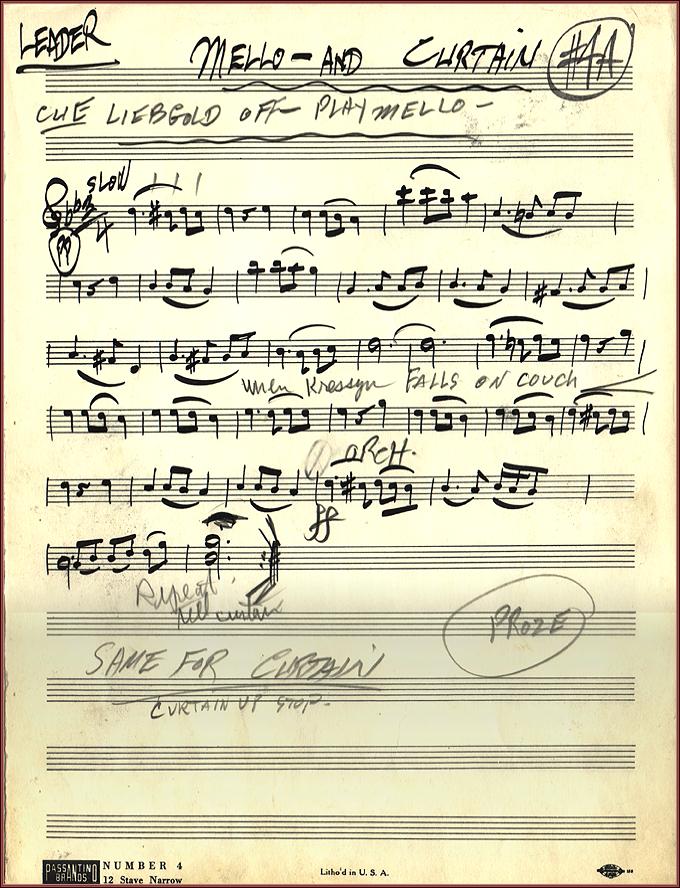 LEADER
MELLO - AND CURTAIN #4A
CUE LIEBGOLD OFF - PLAY MELLO -
SLOW
PP
when Kressyn FALLS ON COUCH
ORCH.
ff
Repeat
till curtain
PROZE
SAME FOR CURTAIN
CURTAIN UP STOP -
PASSANTINO BRANDS
NUMBER 4
12 Stave Narrow
Litho'd in U. S. A.